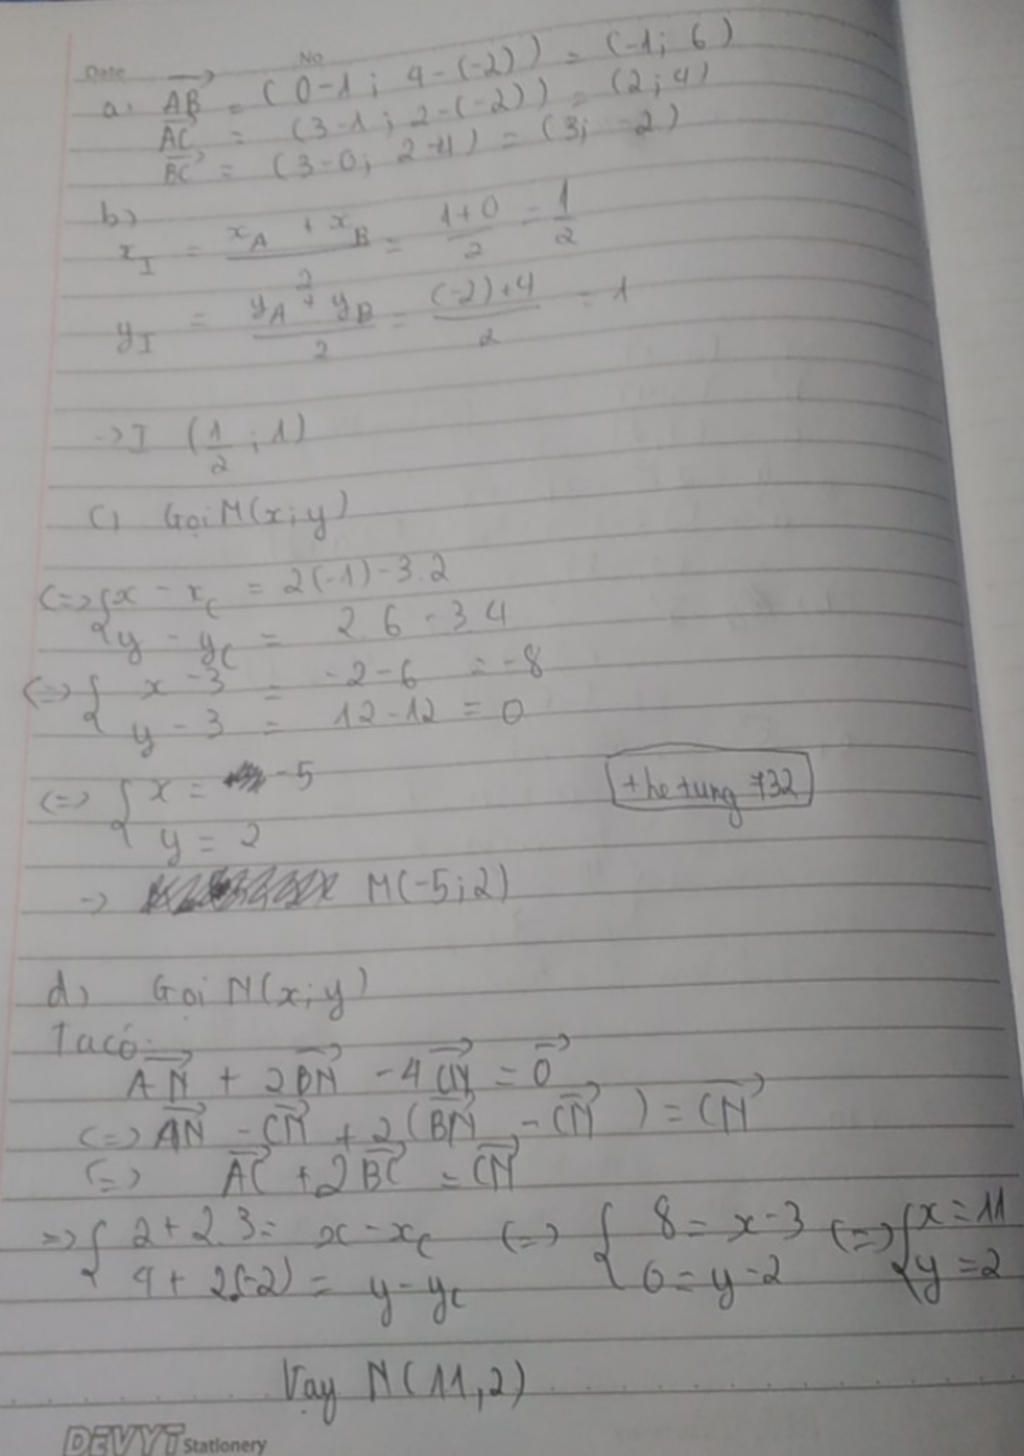 Date No
a. AB = (0-1; 4-(-2)) = (-1; 6)
AC = (3-1; 2-(-2)) = (2; 4)
BC = (3-0; 2-4) = (3; -2)
b)
x_I = (x_A + x_B)/2 = (1+0)/2 = 1/2
y_I = (y_A + y_B)/2 = ((-2)+4)/2 = 1
-> I (1/2; 1)
c) Gọi M(x; y)
<=> { x - x_C = 2(-1)-3.2
y - y_C = 2.6 - 3.4
<=> { x - 3 = -2-6 = -8
y - 3 = 12-12 = 0
<=> { x = -5
y = 2
thetung732
-> M(-5; 2)
d) Gọi N(x; y)
Ta có:
AN + 2BN - 4CN = 0
<=> AN - CN + 2(BN - CN) = CN
<=> AC + 2BC = CN
=> { 2 + 2.3 = x - x_C <=> { 8 = x - 3 <=> { x = 11
4 + 2(-2) = y - y_C 0 = y - 2 y = 2
Vay N(11, 2)
DEVYT Stationery